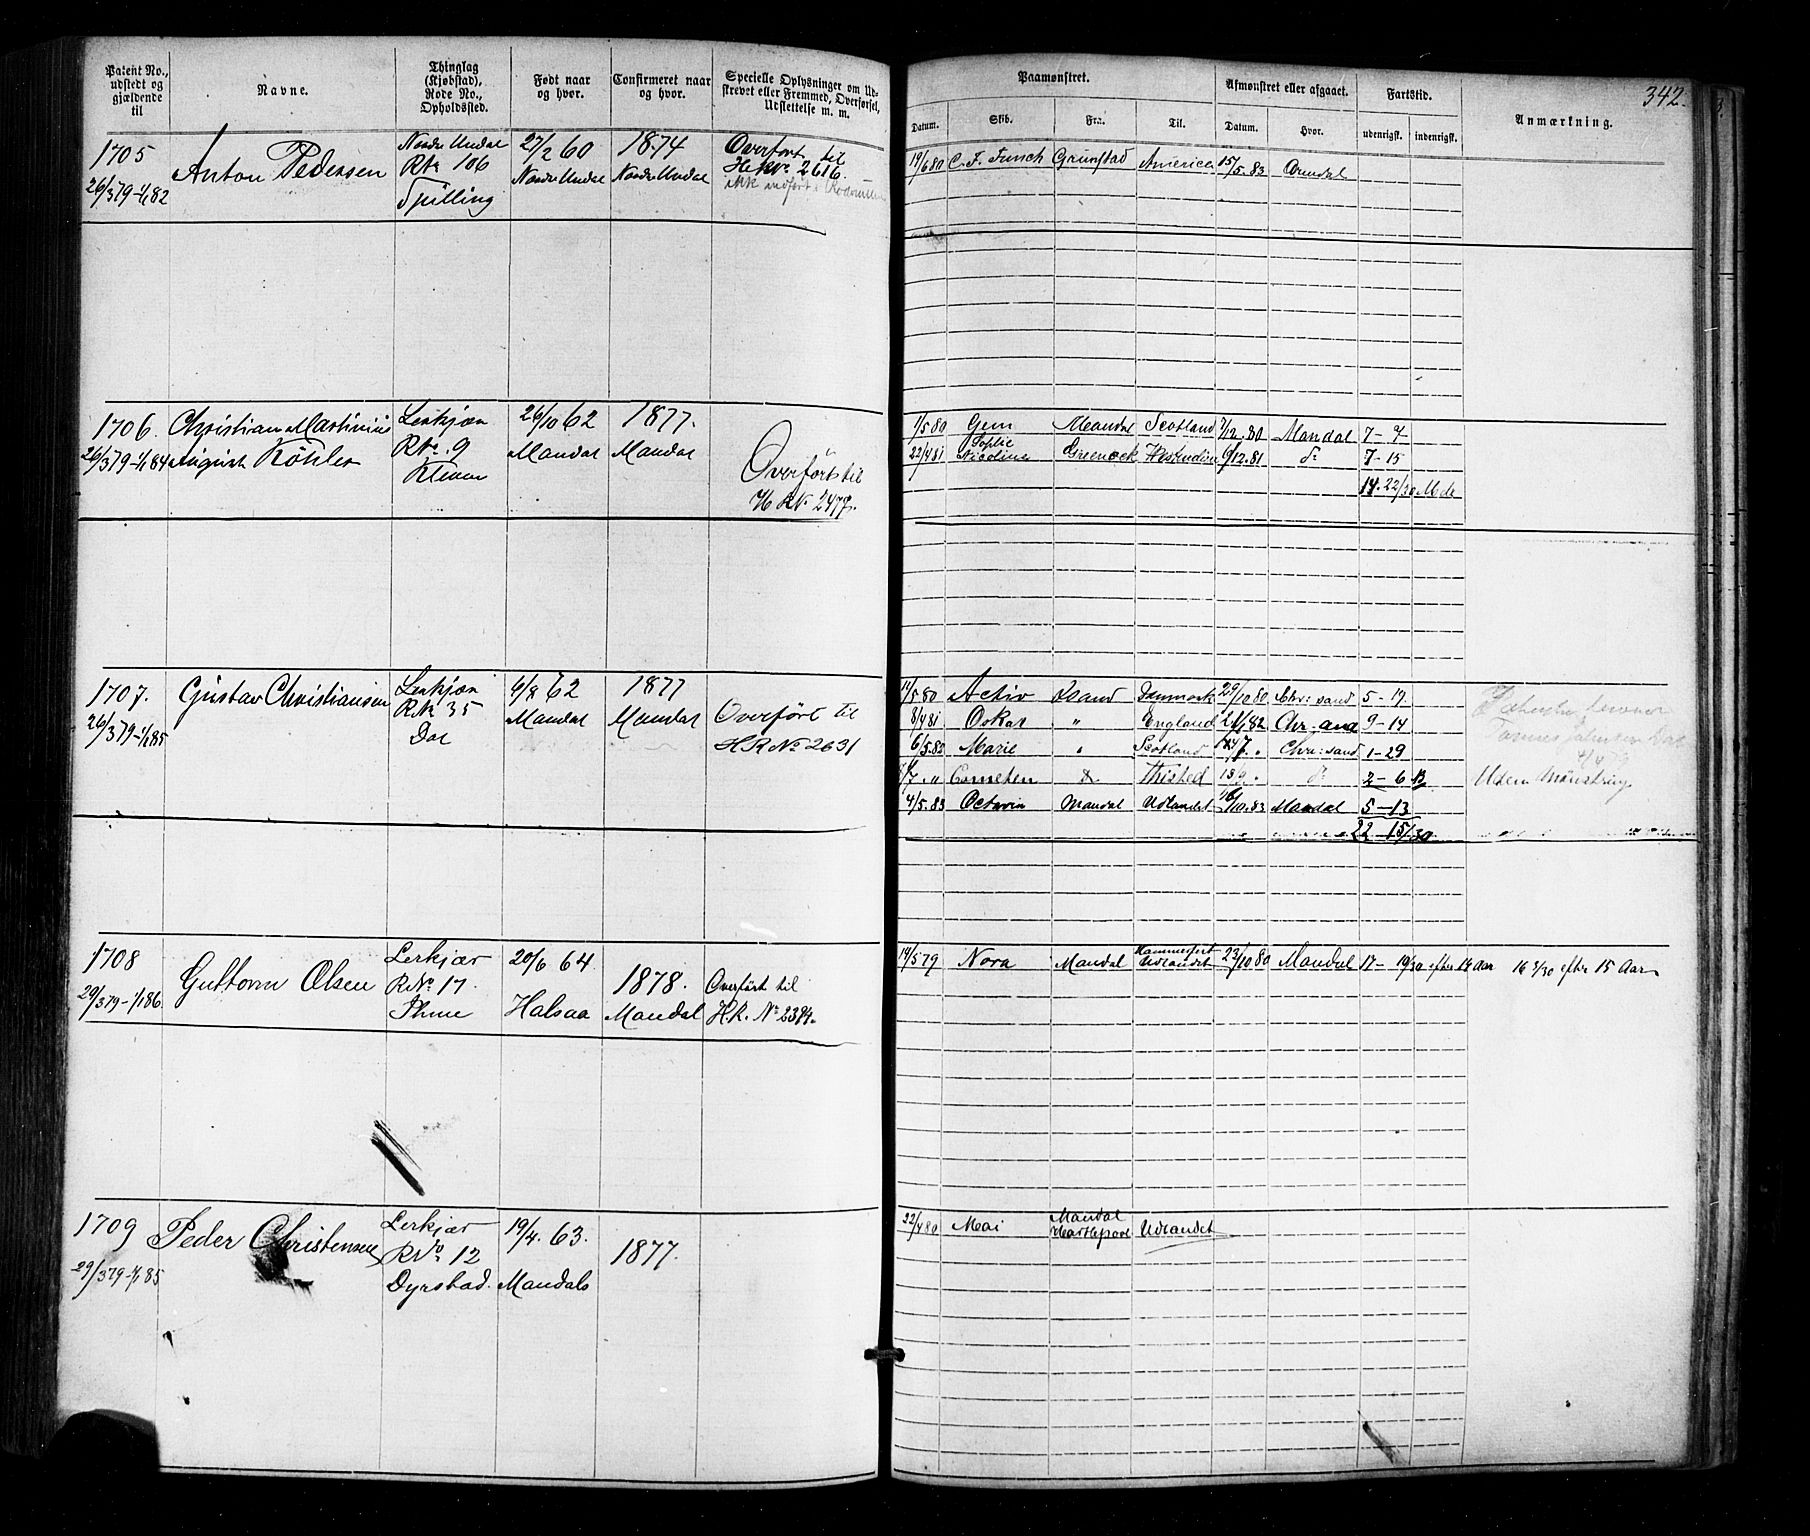 342.
Patent No., udstedt og gjældende til
Navne.
Thinglag (Kjøbstad), Rode No., Opholdssted.
Født naar og hvor.
Confirmeret naar og hvor.
Specielle Oplysninger om Udskrevet eller Fremmed, Overførsel, Udslettelse m. m.
Paamønstret.
Datum.
Skib.
Fra.
Til.
Afmønstret eller afgaaet.
Datum.
Hvor.
Fartstid.
udenrigst.
indenrigst.
Anmærkning.
1705
26/3 79-1/1 82
Anton Pedersen
Nordre Undal
R№ 106
27/2 60
Nordre Undal
1874
Nordre Undal
Overført til
H.R.№ 2616.
19/6 80 C. F. Funch Grimstad America 15/5.83 Arendal
1706.
26/3 79-1/1 84
Christian Martinius
August Köhler
Lerkjær
R№ 9
Kleven
26/10 62
Mandal
1877.
Mandal
Overført til
H R№ 2477.
1/5 80 Gem Mandal Scotland 7/12.80 Mandal 7-7
22/4 81 Sophie Nicoline Greenock 9/12.81 do 7-15
14.22/30 Mdr
1707.
26/3 79-1/1 85
Gustav Christiansen
Lerkjær
R№ 35
Dal
6/8 62
Mandal
1877
Mandal
Overført til
H R № 2631
14/5 80 Activ Xsand Danmark 29/10 80 Chr:sand 5-17.
8/4 81 Oskar " England 21/1 82 Chr.and 9-14
6/5.83 Marie " Scotland Chr:sand 1-29
Cometen do Thisted do 2-6
4/5.83 Octavia Mandal Udlandet 16/10.83 Mandal 5-13
22-15/30
Uden Mönstring
1708
29/3 79-1/1 86.
Guttorm Olsen
Lerkjær
R№ 17.
Ihme
20/6 64
Halsaa
1878.
Mandal
Overført til
H.R. № 2394.
14/5 79 Nora Mandal Hammerfest Udlandet 22/10 80 Mandal 17-19/30 efter 14 Aar 16 3/30 efter 15 Aar
1709
29/3 79-1/1 85
Peder Christensen
Lerkjær
R№ 12
Dyrstad.
19/4. 63.
Mandals
1877.
22/4 80 Mai Mandal Hartlepool Udlandet